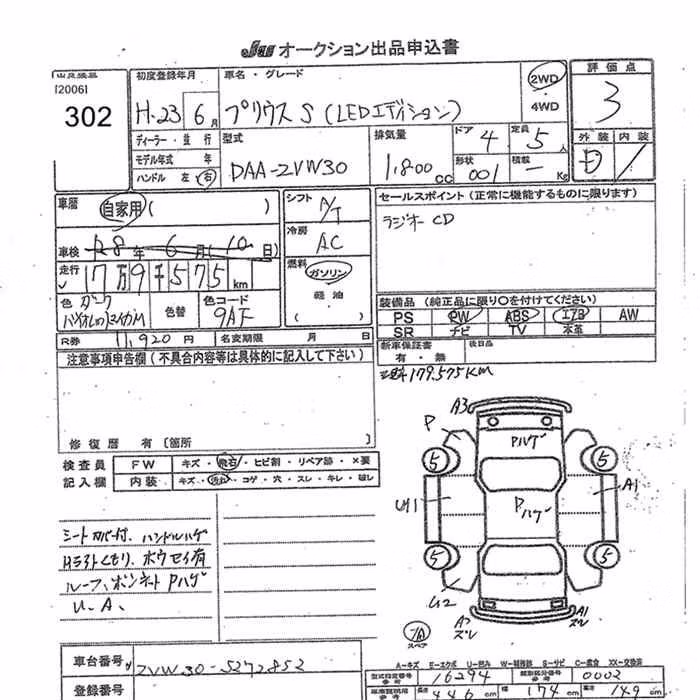 JU オークション出品申込書
[2006]
302
初度登録年月
H.23 6月
ディーラー・並行
モデル年式 年
ハンドル 左 右
車名・グレード
プリウス S (LEDエディション)
2WD
・
4WD
評価点
3
外装 内装
D
型式
DAA-ZVW30
排気量
1,800cc
ドア 4
定員 5人
形状 001
積載 ー Kg
車歴 自家用( )
車検 R8年 6月(10日)
走行 17万9千575km
色 ダーク
色替
色コード 9AF
シフト A/T
冷房 AC
燃料 ガソリン
軽油
( )
セールスポイント (正常に機能するものに限ります)
ラジオ CD
装備品 (純正品に限り○を付けてください)
PS PW ABS エアB AW
SR ナビ TV 本革
R券 11,920円 名変期限 月 日
新車保証書 有・無
後日品
注意事項申告欄(不具合内容等は具体的に記入して下さい)
179,575KM
修復歴 有〔箇所 〕
検査員 FW キズ・飛石・ヒビ割・リペア跡・×要
記入欄 内装 キズ・汚れ・コゲ・穴・スレ・キレ・破レ
シートカバー付、ハンドルハゲ
Hライトくもり、ボウセイ有
ルーフ、ボンネットPハゲ
U、A、
A3
P
Pハゲ
5 5
U1
Pハゲ
A1
5 5
U2
A2
スレ
A1
スレ
スペア
A-キズ E-エクボ U-凹み W-補修跡 S-サビ C-腐食 XX-交換済
車台番号 ZVW30-5272852
登録番号
型式指定番号 16294
類別区分番号 0002
長さ 446cm 幅 174cm 高さ 149cm